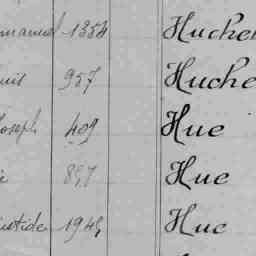 mmanuel 1354 Huche
uis 957 Huche
Joseph 409 Hue
e 857 Hue
Clotilde 1949 Hue